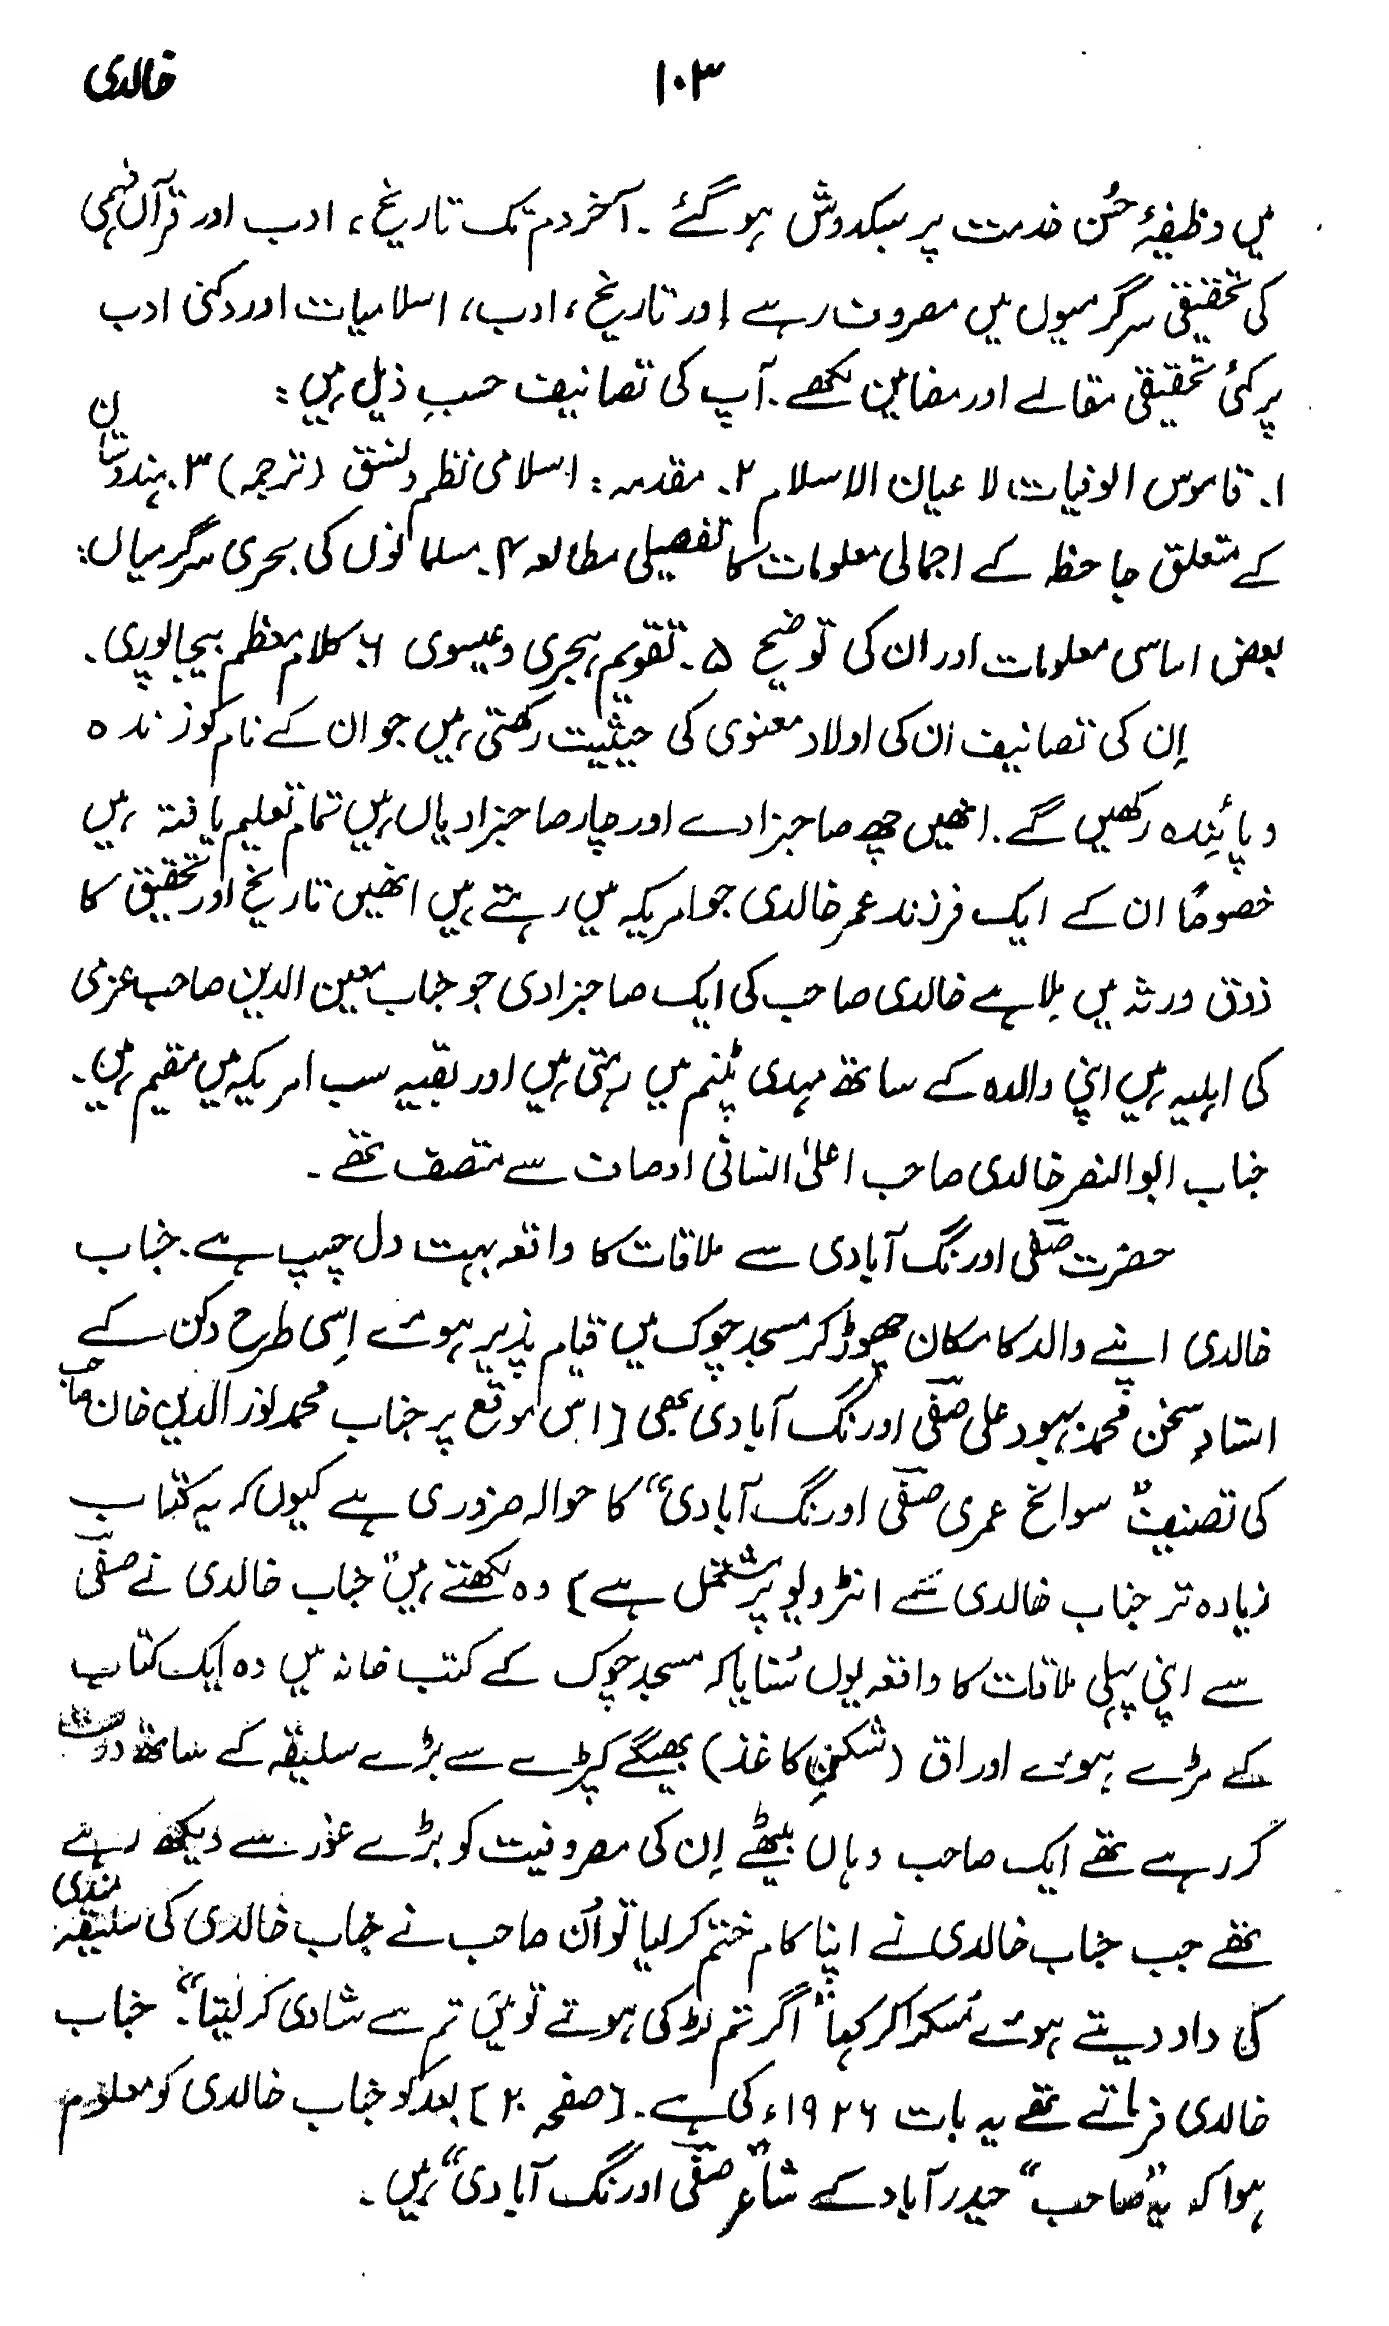 خالدی
۱۰۳
میں وظیفۂ حُسن خدمت پر سبکدوش ہوگئے ۔ آخر دم تک تاریخ، ادب اور قرآن فہمی
کی تحقیقی سرگرمیوں میں مصروف رہے اور تاریخ، ادب، اسلامیات اور دکنی ادب
پر کئی تحقیقی مقالے اور مضامین لکھے۔ آپ کی تصانیف حسبِ ذیل ہیں :
۱۔ قاموس الوفیات لاعیان الاسلام ۲۔ مقدمہ : اسلامی نظم و نسق (ترجمہ) ۳۔ ہندوستان
کے متعلق جاحظ کے اجمالی معلومات کا تفصیلی مطالعہ ۴۔ مسلمانوں کی بحری سرگرمیاں :
بعض اساسی معلومات اور ان کی توضیح ۵۔ تقویم ہجری و عیسوی ۶۔ کلام معظم بیجاپوری۔
اِن کی تصانیف ان کی اولاد معنوی کی حیثیت رکھتی ہیں جو ان کے نام کو زندہ
و پائندہ رکھیں گے۔ انھیں چھ صاحبزادے اور چار صاحبزادیاں ہیں تمام تعلیم یافتہ ہیں
خصوصاً ان کے ایک فرزند عمر خالدی جو امریکہ میں رہتے ہیں انھیں تاریخ اور تحقیق کا
ذوق ورثہ میں مِلا ہے خالدی صاحب کی ایک صاحبزادی جو جناب معین الدین صاحب عزمی
کی اہلیہ ہیں اپنی والدہ کے ساتھ مہدی پٹنم میں رہتی ہیں اور بقیہ سب امریکہ میں مقیم ہیں۔
جناب ابوالنصر خالدی صاحب اعلیٰ انسانی اوصاف سے متصف تھے ۔
حضرت صفی اورنگ آبادی سے ملاقات کا واقعہ بہت دل چسپ ہے۔ جناب
خالدی اپنے والد کا مکان چھوڑ کر مسجد چوک میں قیام پذیر ہوئے اِسی طرح دکن کے
استادِ سخن محمد بہبود علی صفی اورنگ آبادی بھی [اس موقع پر جناب محمد نور الدین خان صاحب
کی تصنیف "سوانح عمری صفی اورنگ آبادی" کا حوالہ ضروری ہے کیوں کہ یہ کتاب
زیادہ تر جناب خالدی سے انٹرویو پر مشتمل ہے] وہ لکھتے ہیں "جناب خالدی نے صفی
سے اپنی پہلی ملاقات کا واقعہ یوں سُنایا کہ مسجد چوک کے کتب خانہ میں وہ ایک کتاب
کے مڑے ہوئے اوراق (شکنِ کاغذ) بھیگے کپڑے سے بڑے سلیقہ کے ساتھ درست
کر رہے تھے ایک صاحب وہاں بیٹھے اِن کی مصروفیت کو بڑے غور سے دیکھ رہے
تھے جب جناب خالدی نے اپنا کام ختم کر لیا تو اُن صاحب نے جناب خالدی کی سلیقہ مندی
کی داد دیتے ہوئے مُسکرا کر کہا "اگر تم لڑکی ہوتے تو میں تم سے شادی کر لیتا"۔ جناب
خالدی فرماتے تھے یہ بات ۱۹۲۶ء کی ہے۔ [صفحہ ۲۰] بعد کو جناب خالدی کو معلوم
ہوا کہ یہ "صاحب" حیدرآباد کے شاعر "صفی اورنگ آبادی" ہیں۔